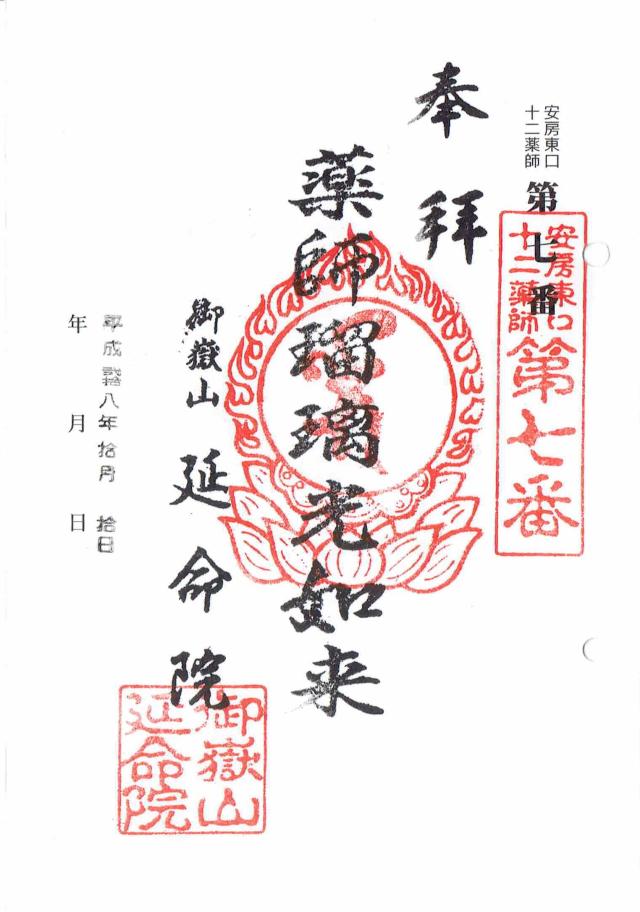 安房東口
十二薬師
第七番
安房東口
十二薬師
第七番
奉拝
薬師瑠璃光如来
御嶽山 延命院
御嶽山
延命院
平成弐拾八年拾月拾日
年 月 日